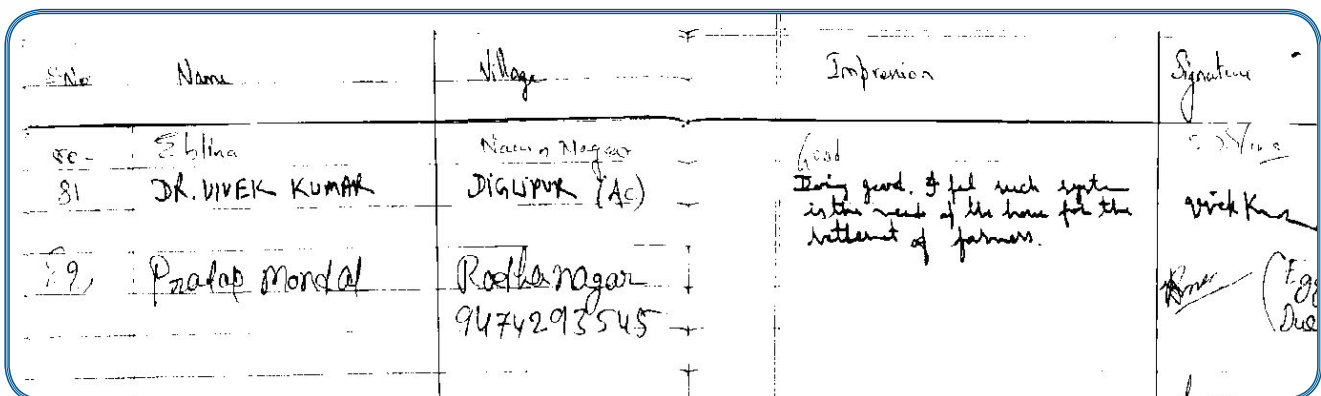 S.No Name Village Impression Signature
80- Eblina Good
81 DR. VIVEK KUMAR DIGLIPUR (AC) Doing good. I feel such system
is the need of the hour for the
of farmers.
Pratap Mondal Radhanagar
9474293545